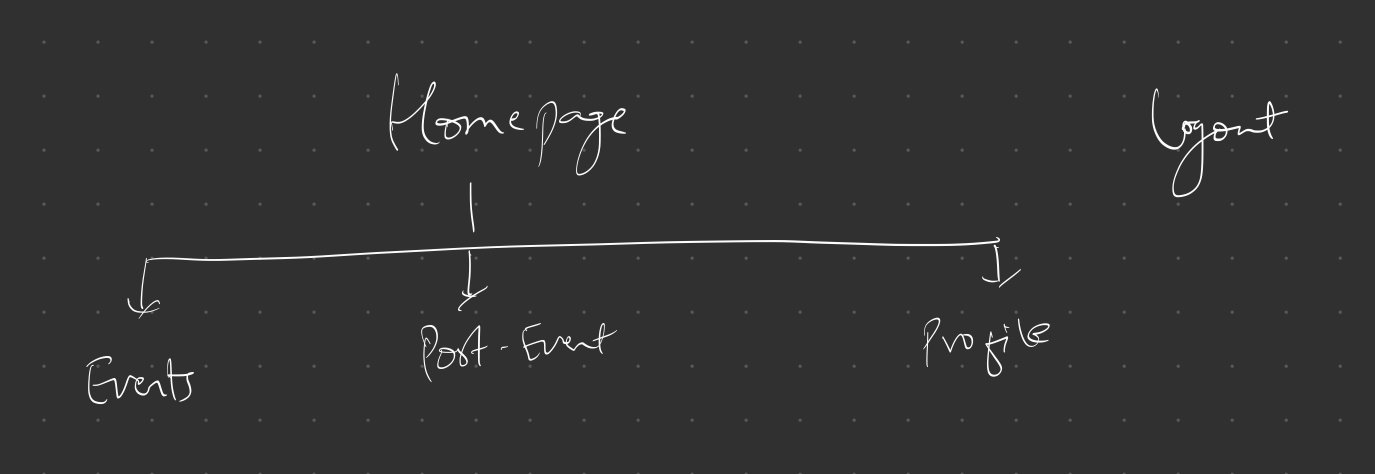 Homepage
Logout
Events
Post-Event
Profile